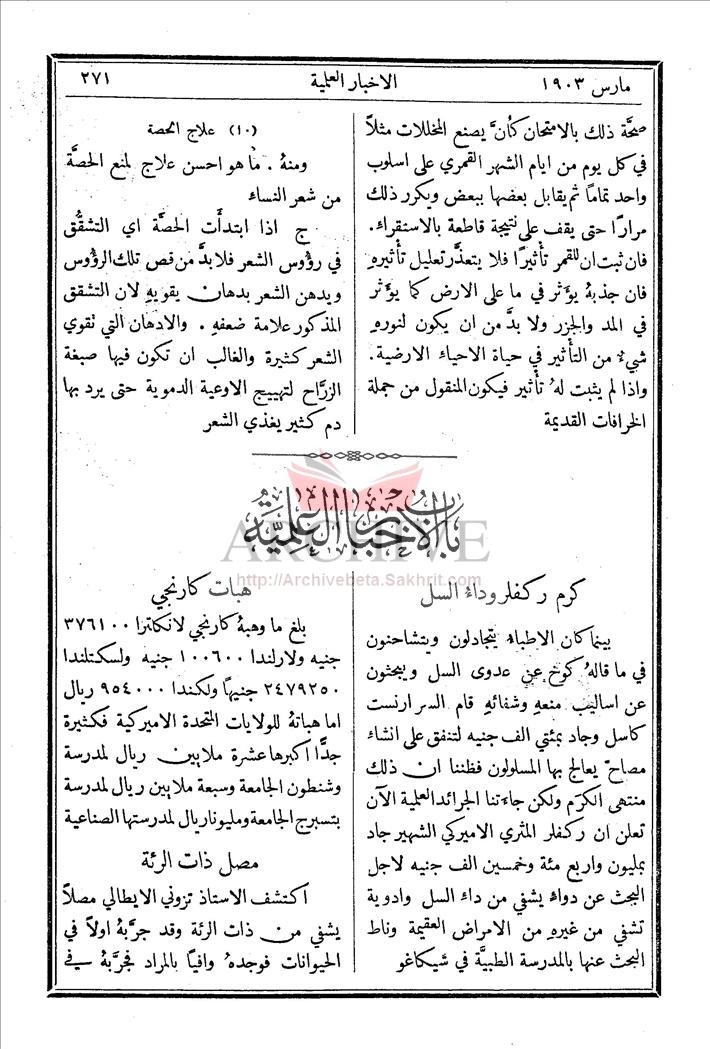 مارس ١٩٠٣
الاخبار العلمية
٢٧١
صحَّة ذلك بالامتحان كأَن يصنع المخللات مثلاً
في كل يوم من ايام الشهر القمري على اسلوب
واحد تماماً ثم يقابل بعضها ببعض ويكرر ذلك
مراراً حتى يقف على نتيجة قاطعة بالاستقراء.
فان ثبت ان للقمر تأْثيراً فلا يتعذَّر تعليل تأْثيرهِ
فان جذبهُ يؤَثر في ما على الارض كما يؤَثر
في المد والجزر ولا بدَّ من ان يكون لنورهِ
شيءٌ من التأْثير في حياة الاحياء الارضية.
واذا لم يثبت لهُ تأْثير فيكون المنقول من جملة
الخرافات القديمة
(١٠) علاج الحصة
ومنهُ . ما هو احسن علاج لمنع الحصَّة
من شعر النساء
ج اذا ابتدأَت الحصَّة اي التشقُّق
في رؤُوس الشعر فلا بدَّ من قص تلك الرؤُوس
ويدهن الشعر بدهان يقويهِ لان التشقق
المذكور علامة ضعفهِ . والادهان التي تقوي
الشعر كثيرة والغالب ان تكون فيها صبغة
الزرَّاح لتهييج الاوعية الدموية حتى يرد بها
دم كثير يغذي الشعر
باب الاخبار العلمية
ARCHIVE
http://Archivebeta.Sakhrit.com
كرم ركفلر وداءُ السل
بينما كان الاطباءُ يتجادلون ويتشاحنون
في ما قالهُ كوخ عن عدوى السل ويبحثون
عن اساليب منعهِ وشفائهِ قام السر ارنست
كاسل وجاد بمئتي الف جنيه لتنفق على انشاء
مصاحّ يعالج بها المسلولون فظننا ان ذلك
منتهى الكرَم ولكن جاءَتنا الجرائد العلية الآن
تعلن ان ركفلر المثري الاميركي الشهير جاد
بمليون واربع مئة وخمسين الف جنيه لاجل
البحث عن دواءٍ يشفي من داءِ السل وادوية
تشفي من غيرهِ من الامراض العقيمة وناط
البحث عنها بالمدرسة الطبيَّة في شيكاغو
هبات كارنجي
بلغ ما وهبهُ كارنجي لانكلترا ٣٧٦١٠٠
جنيه ولارلندا ١٠٠٦٠٠ جنيه ولسكتلندا
٢٤٧٩٢٥٠ جنيهاً ولكندا ٩٥٤٠٠٠ ريال
اما هباتهُ للولايات المتحدة الاميركية فكثيرة
جدًّا اكبرها عشرة ملايين ريال لمدرسة
وشنطون الجامعة وسبعة ملايين ريال لمدرسة
بتسبرج الجامعة ومليونا ريال لمدرستها الصناعية
مصل ذات الرئة
اكتشف الاستاذ تزوني الايطالي مصلاً
يشفي من ذات الرئة وقد جربهُ اولاً في
الحيوانات فوجدهُ وافياً بالمراد فجربهُ في